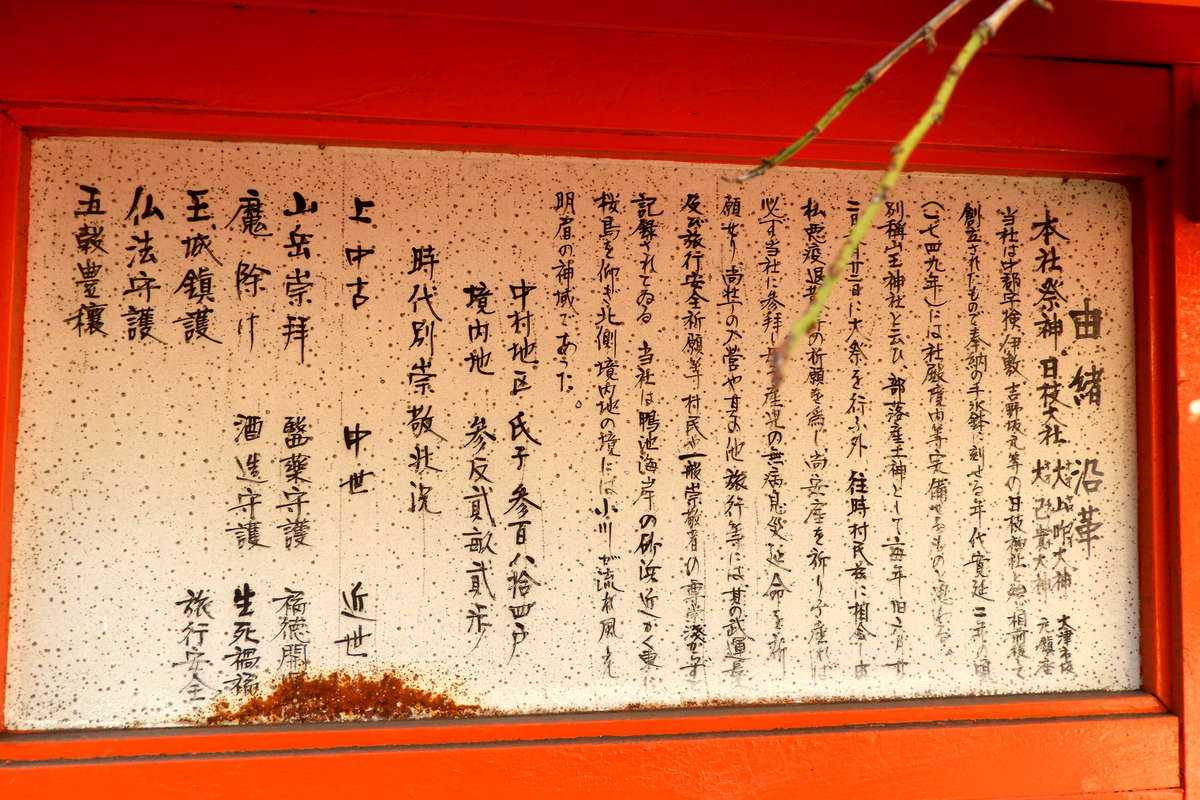 由緒沿革
本社祭神 日枝大社 大山咋大神 大津市坂
大己貴大神 元鎮座
当社は 伊敷、吉野坂元等の日枝神社と 相前後して
創立されたもので奉納の手水鉢に刻せる年代寛延二年の頃
(一七四九年)には社殿境内等完備せるものと
別称山王神社と云ひ、部落産土神として毎年旧六月廿
二日廿三日に大祭を行ふ外 往時村民 に相会し
私 悪疫退 の祈願を為し、尚安産を祈り子産れば
必ず当社に参拝し 産児の無病息災延命を祈
願せり 尚 の入営や其の他旅行等には其の武運長
及び旅行安全祈願等村民や一般崇敬者の 深からず
記録されてゐる 当社は鴨池海岸の砂浜近かく東に
桜島を仰ぎ北側境内地の境には小川が流れ風光
明眉の神域であった。
中村地区氏子 参百八拾四戸
境内地 参反貳畝貳歩
時代別崇敬状況
上中古 中世 近世
山岳崇拝 醫薬守護 福徳開
魔除け 酒造守護 生死禍福
王城鎮護 旅行安全
仏法守護
五穀豊穰